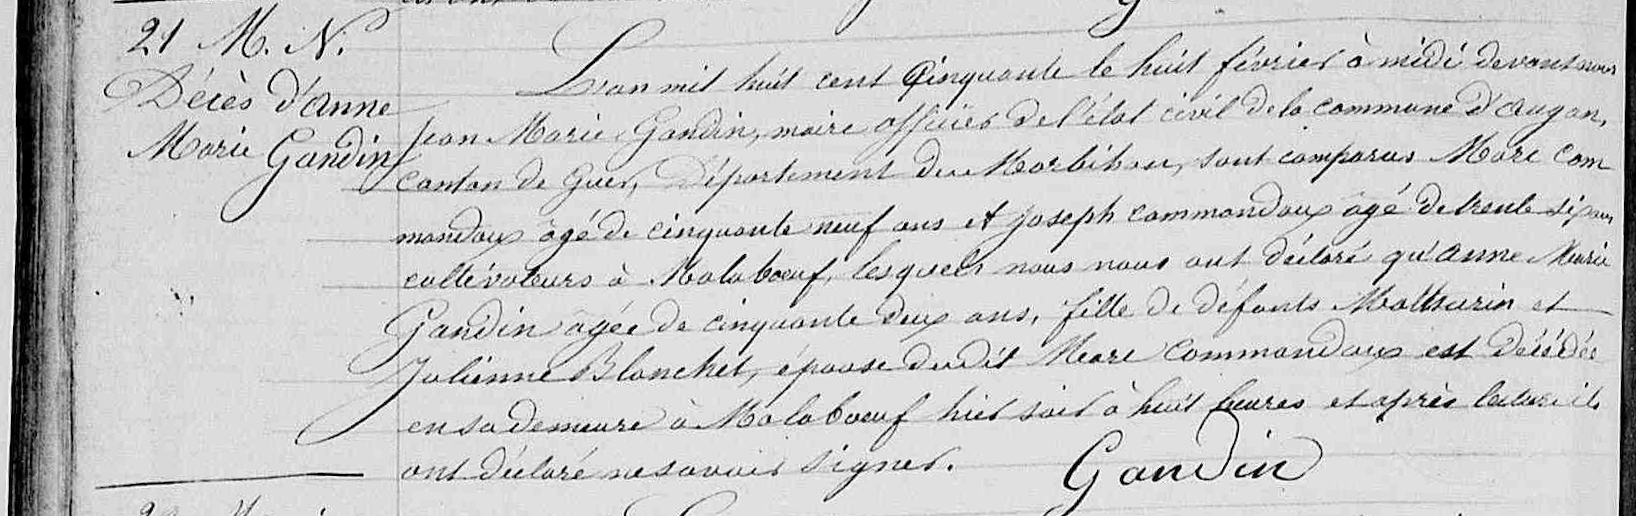 21 M. N.
Décès d'anne
Marie Gandin
L'an mil huit cent Cinquante le huit février à midi devant nous
Jean Marie Gandin, maire officier de l'état civil de la commune d'augan,
canton de Guer, Département du Morbihan, sont comparus Marc Com
mandoux âgé de cinquante neuf ans et Joseph commandoux âgé de trente six ans
cultivateurs à Malaboeuf, lesquels nous nous ont déclaré qu'anne Marie
Gandin âgée de cinquante deux ans, fille de défunts Mathurin et
Julienne Blanchet, épouse dudit Marc Commandoux est décédée
en sa demeure à Malaboeuf hier soir à huit heures et après lecture ils
ont déclaré ne savoir signer.
Gandin